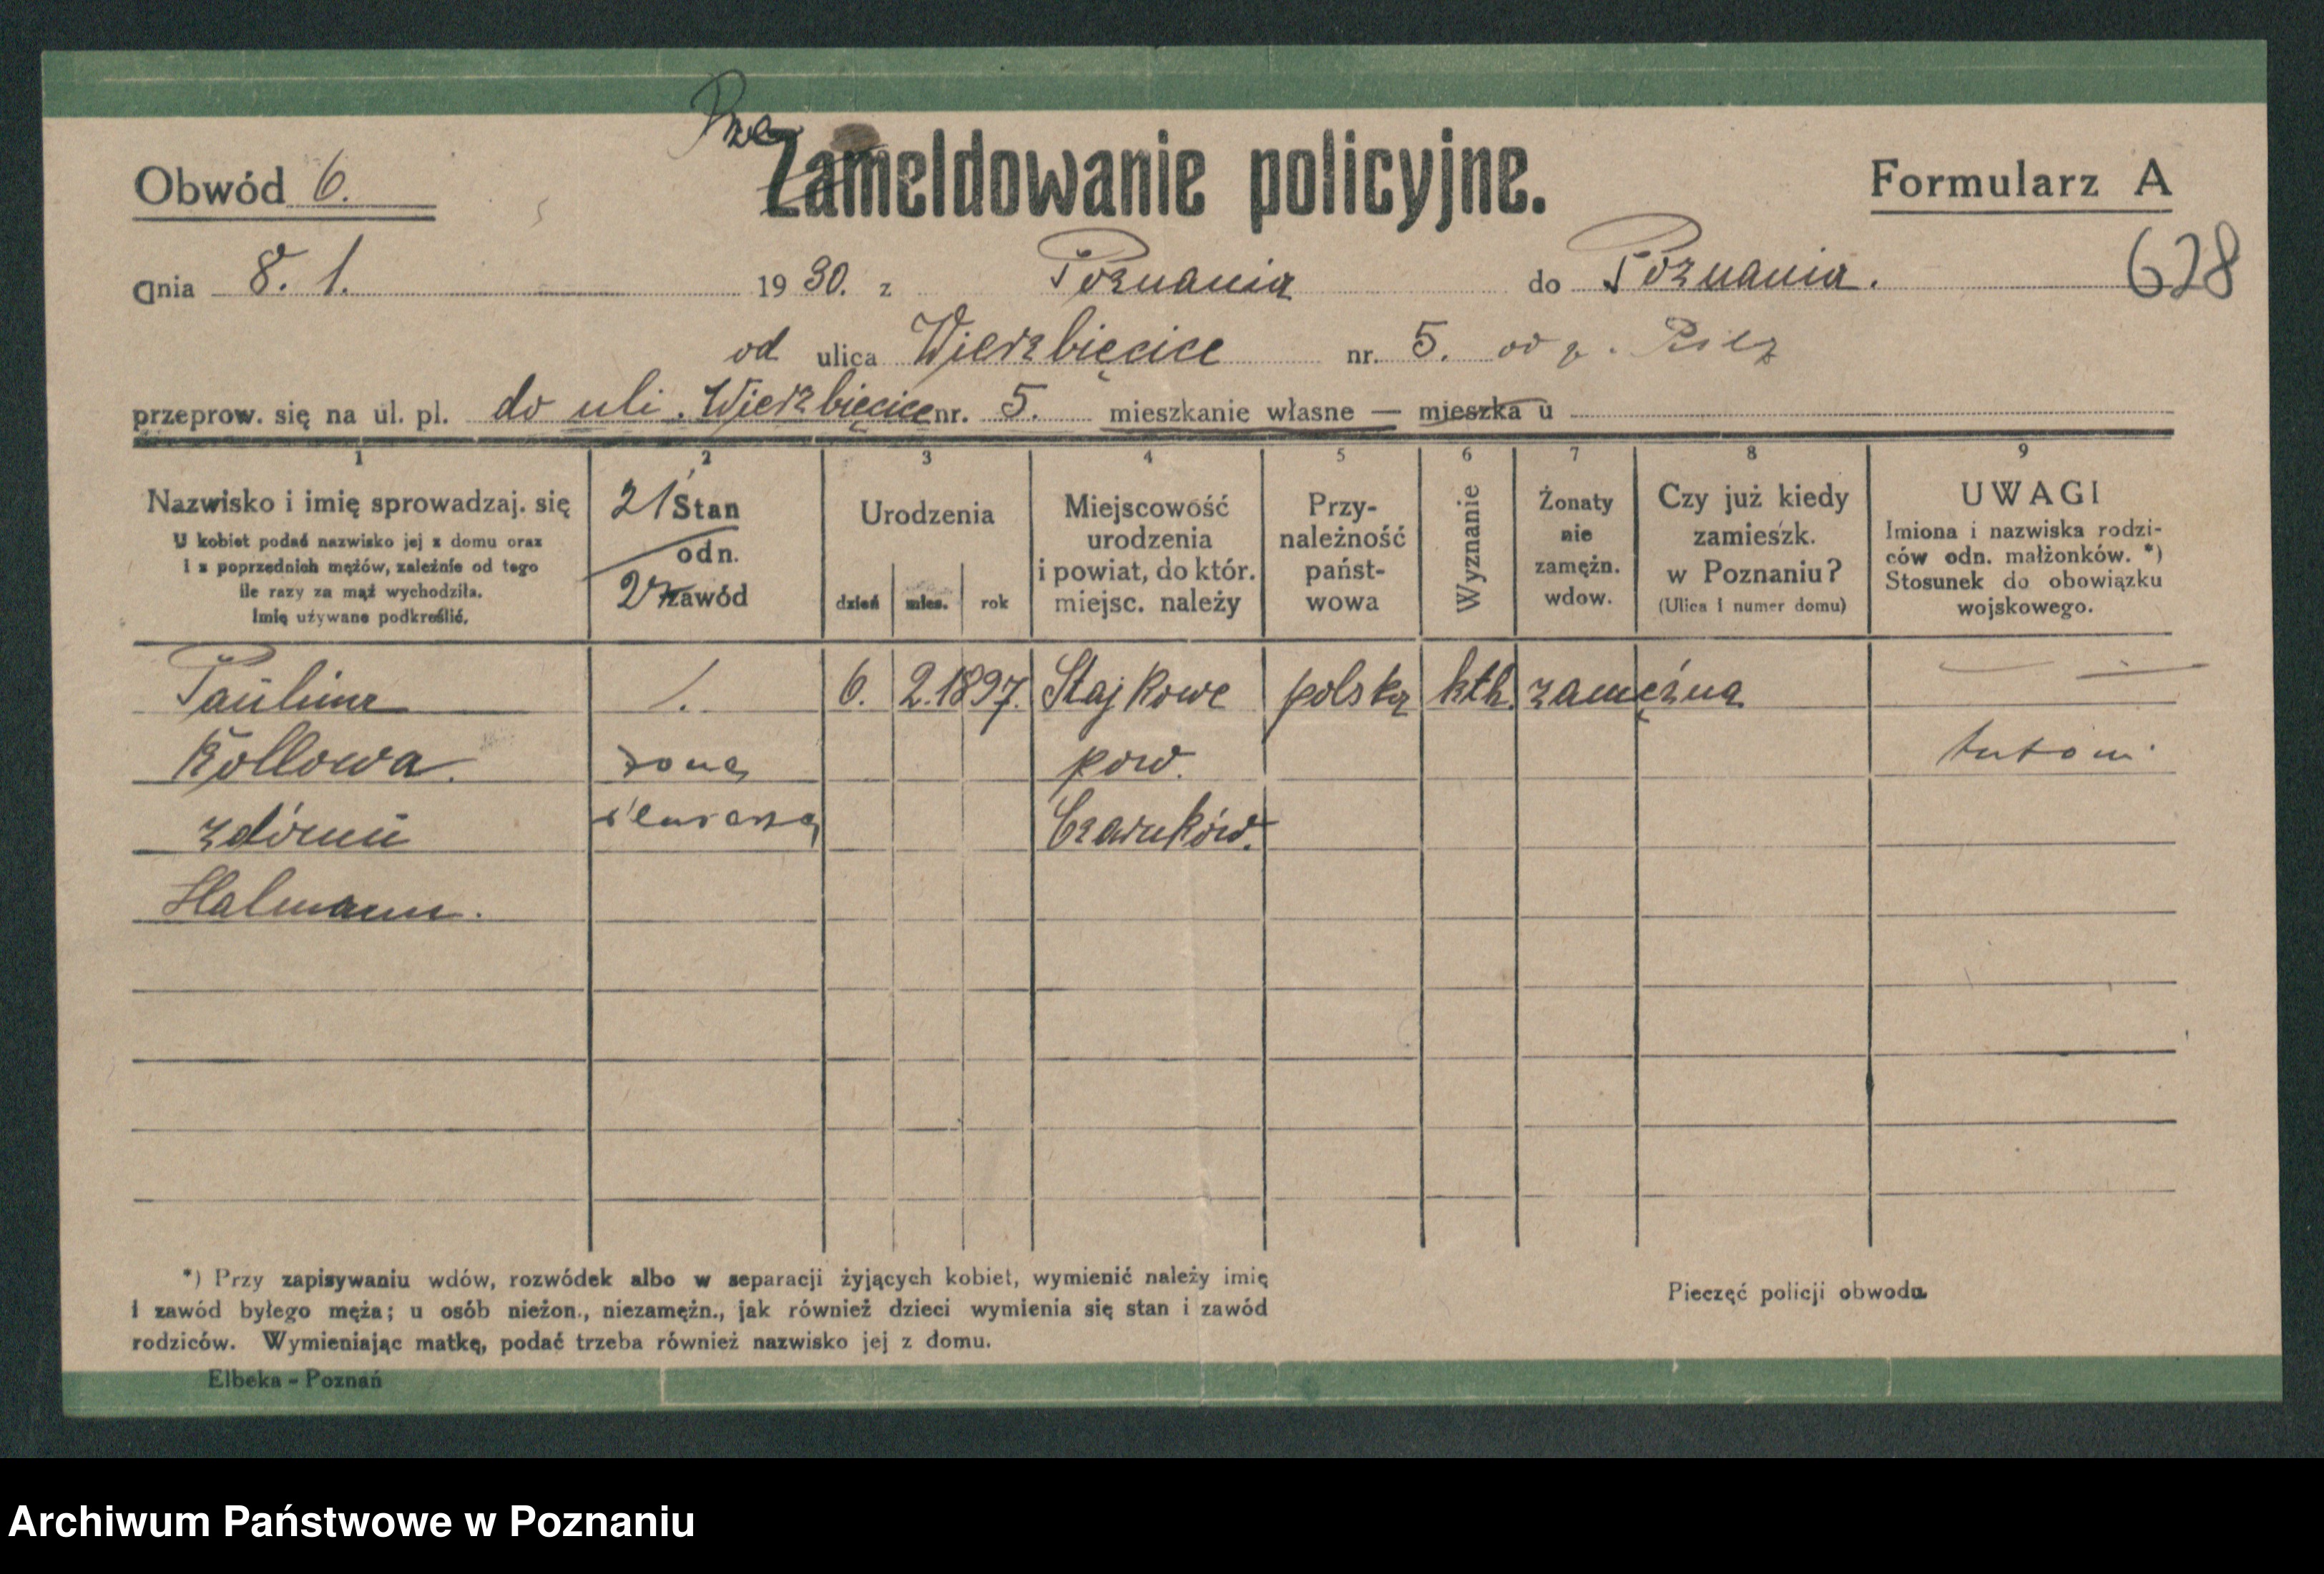 Prze
Zameldowanie policyjne.
Obwód 6.
Formularz A
628
dnia 8. 1. 1930. z Poznania do Poznania.
od ulica Wierzbięcice nr. 5. od p.
przeprow. się na ul. pl. do uli. Wierzbięcice nr. 5. mieszkanie własne — mieszka u
1 2 3 4 5 6 7 8 9
Nazwisko i imię sprowadzaj. się
U kobiet podać nazwisko jej z domu oraz
i z poprzednich mężów, zależnie od tego
ile razy za mąż wychodziła.
Imię używane podkreślić.
21 Stan
odn.
zawód
Urodzenia
dzień mies. rok
Miejscowość
urodzenia
i powiat, do któr.
miejsc. należy
Przy-
należność
państ-
wowa
Wyznanie
Żonaty
nie
zamężn.
wdow.
Czy już kiedy
zamieszk.
w Poznaniu?
(Ulica i numer domu)
UWAGI
Imiona i nazwiska rodzi-
ców odn. małżonków. *)
Stosunek do obowiązku
wojskowego.
Paulina /. 6. 2. 1897. Stajkowe polska kth. zamężna
Köllowa. żona pow.
zdómu ślusarza Czarnków.
Halmann.
*) Przy zapisywaniu wdów, rozwódek albo w separacji żyjących kobiet, wymienić należy imię
i zawód byłego męża; u osób nieżon., niezamężn., jak również dzieci wymienia się stan i zawód
rodziców. Wymieniając matkę, podać trzeba również nazwisko jej z domu.
Pieczęć policji obwodu.
Elbeka - Poznań
Archiwum Państwowe w Poznaniu